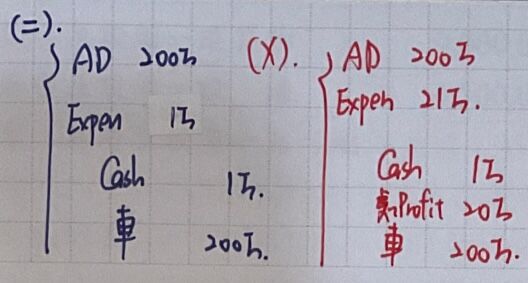 (二).
AD 200万
Expen 1万
Cash 1万.
車 200万.
(X).
AD 200万
Expen 21万.
Cash 1万
Profit 20万
車 200万.